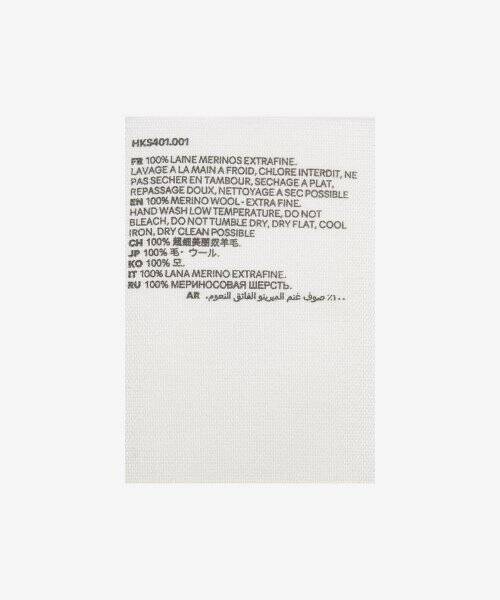 HKS401.001
FR 100% LAINE MERINOS EXTRAFINE.
LAVAGE A LA MAIN A FROID, CHLORE INTERDIT, NE
PAS SECHER EN TAMBOUR, SECHAGE A PLAT,
REPASSAGE DOUX, NETTOYAGE A SEC POSSIBLE
EN 100% MERINO WOOL - EXTRA FINE.
HAND WASH LOW TEMPERATURE, DO NOT
BLEACH, DO NOT TUMBLE DRY, DRY FLAT, COOL
IRON, DRY CLEAN POSSIBLE
CH 100% 超细美丽奴羊毛.
JP 100% 毛・ウール.
KO 100% 모.
IT 100% LANA MERINO EXTRAFINE.
RU 100% МЕРИНОСОВАЯ ШЕРСТЬ.
AR ١٠٠٪ صوف غنم الميرينو الفائق النعوم.